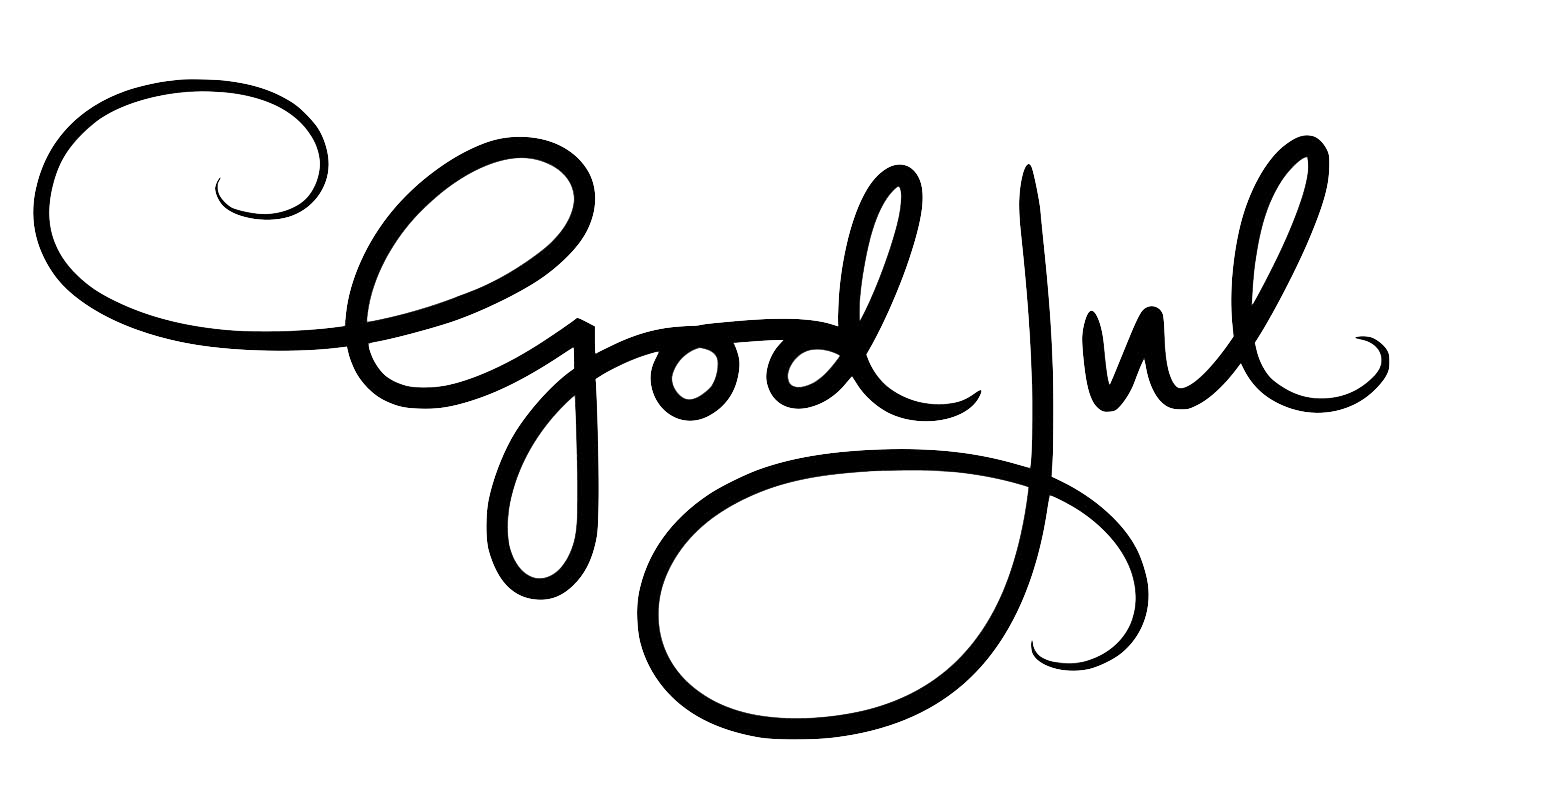 God Jul